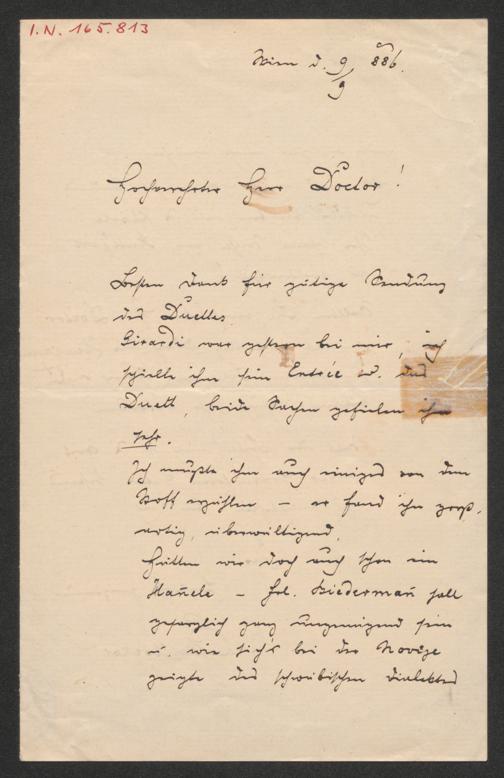 I.N. 165.813
Wien d. 9/9 886.
Hochverehrter Herr Doctor!
Besten Dank für gütige Sendung
des Duettes
Girardi war gestern bei mir, ich
spielte ihm sein Entrée u. das
Duett, beide Sachen gefielen ihm
sehr.
Ich mußte ihm auch einiges von dem
Stoff erzählen – er fand ihn groß-
artig, überwältigend.
Hätten wir doch auch schon ein
Hañele – Frl. Biedermañ soll
gesanglich ganz ungenügend sein
u. wie sich's bei der
zeigte des schwäbischen Dialektes